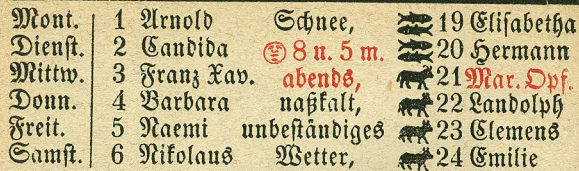 Mont. 1 Arnold Schnee, 19 Elisabetha
Dienst. 2 Candida 8 u. 5 m. 20 Hermann
Mittw. 3 Franz Xav. abends, 21 Mar. Opf.
Donn. 4 Barbara naßkalt, 22 Landolph
Freit. 5 Naemi unbeständiges 23 Clemens
Samst. 6 Nikolaus Wetter, 24 Emilie